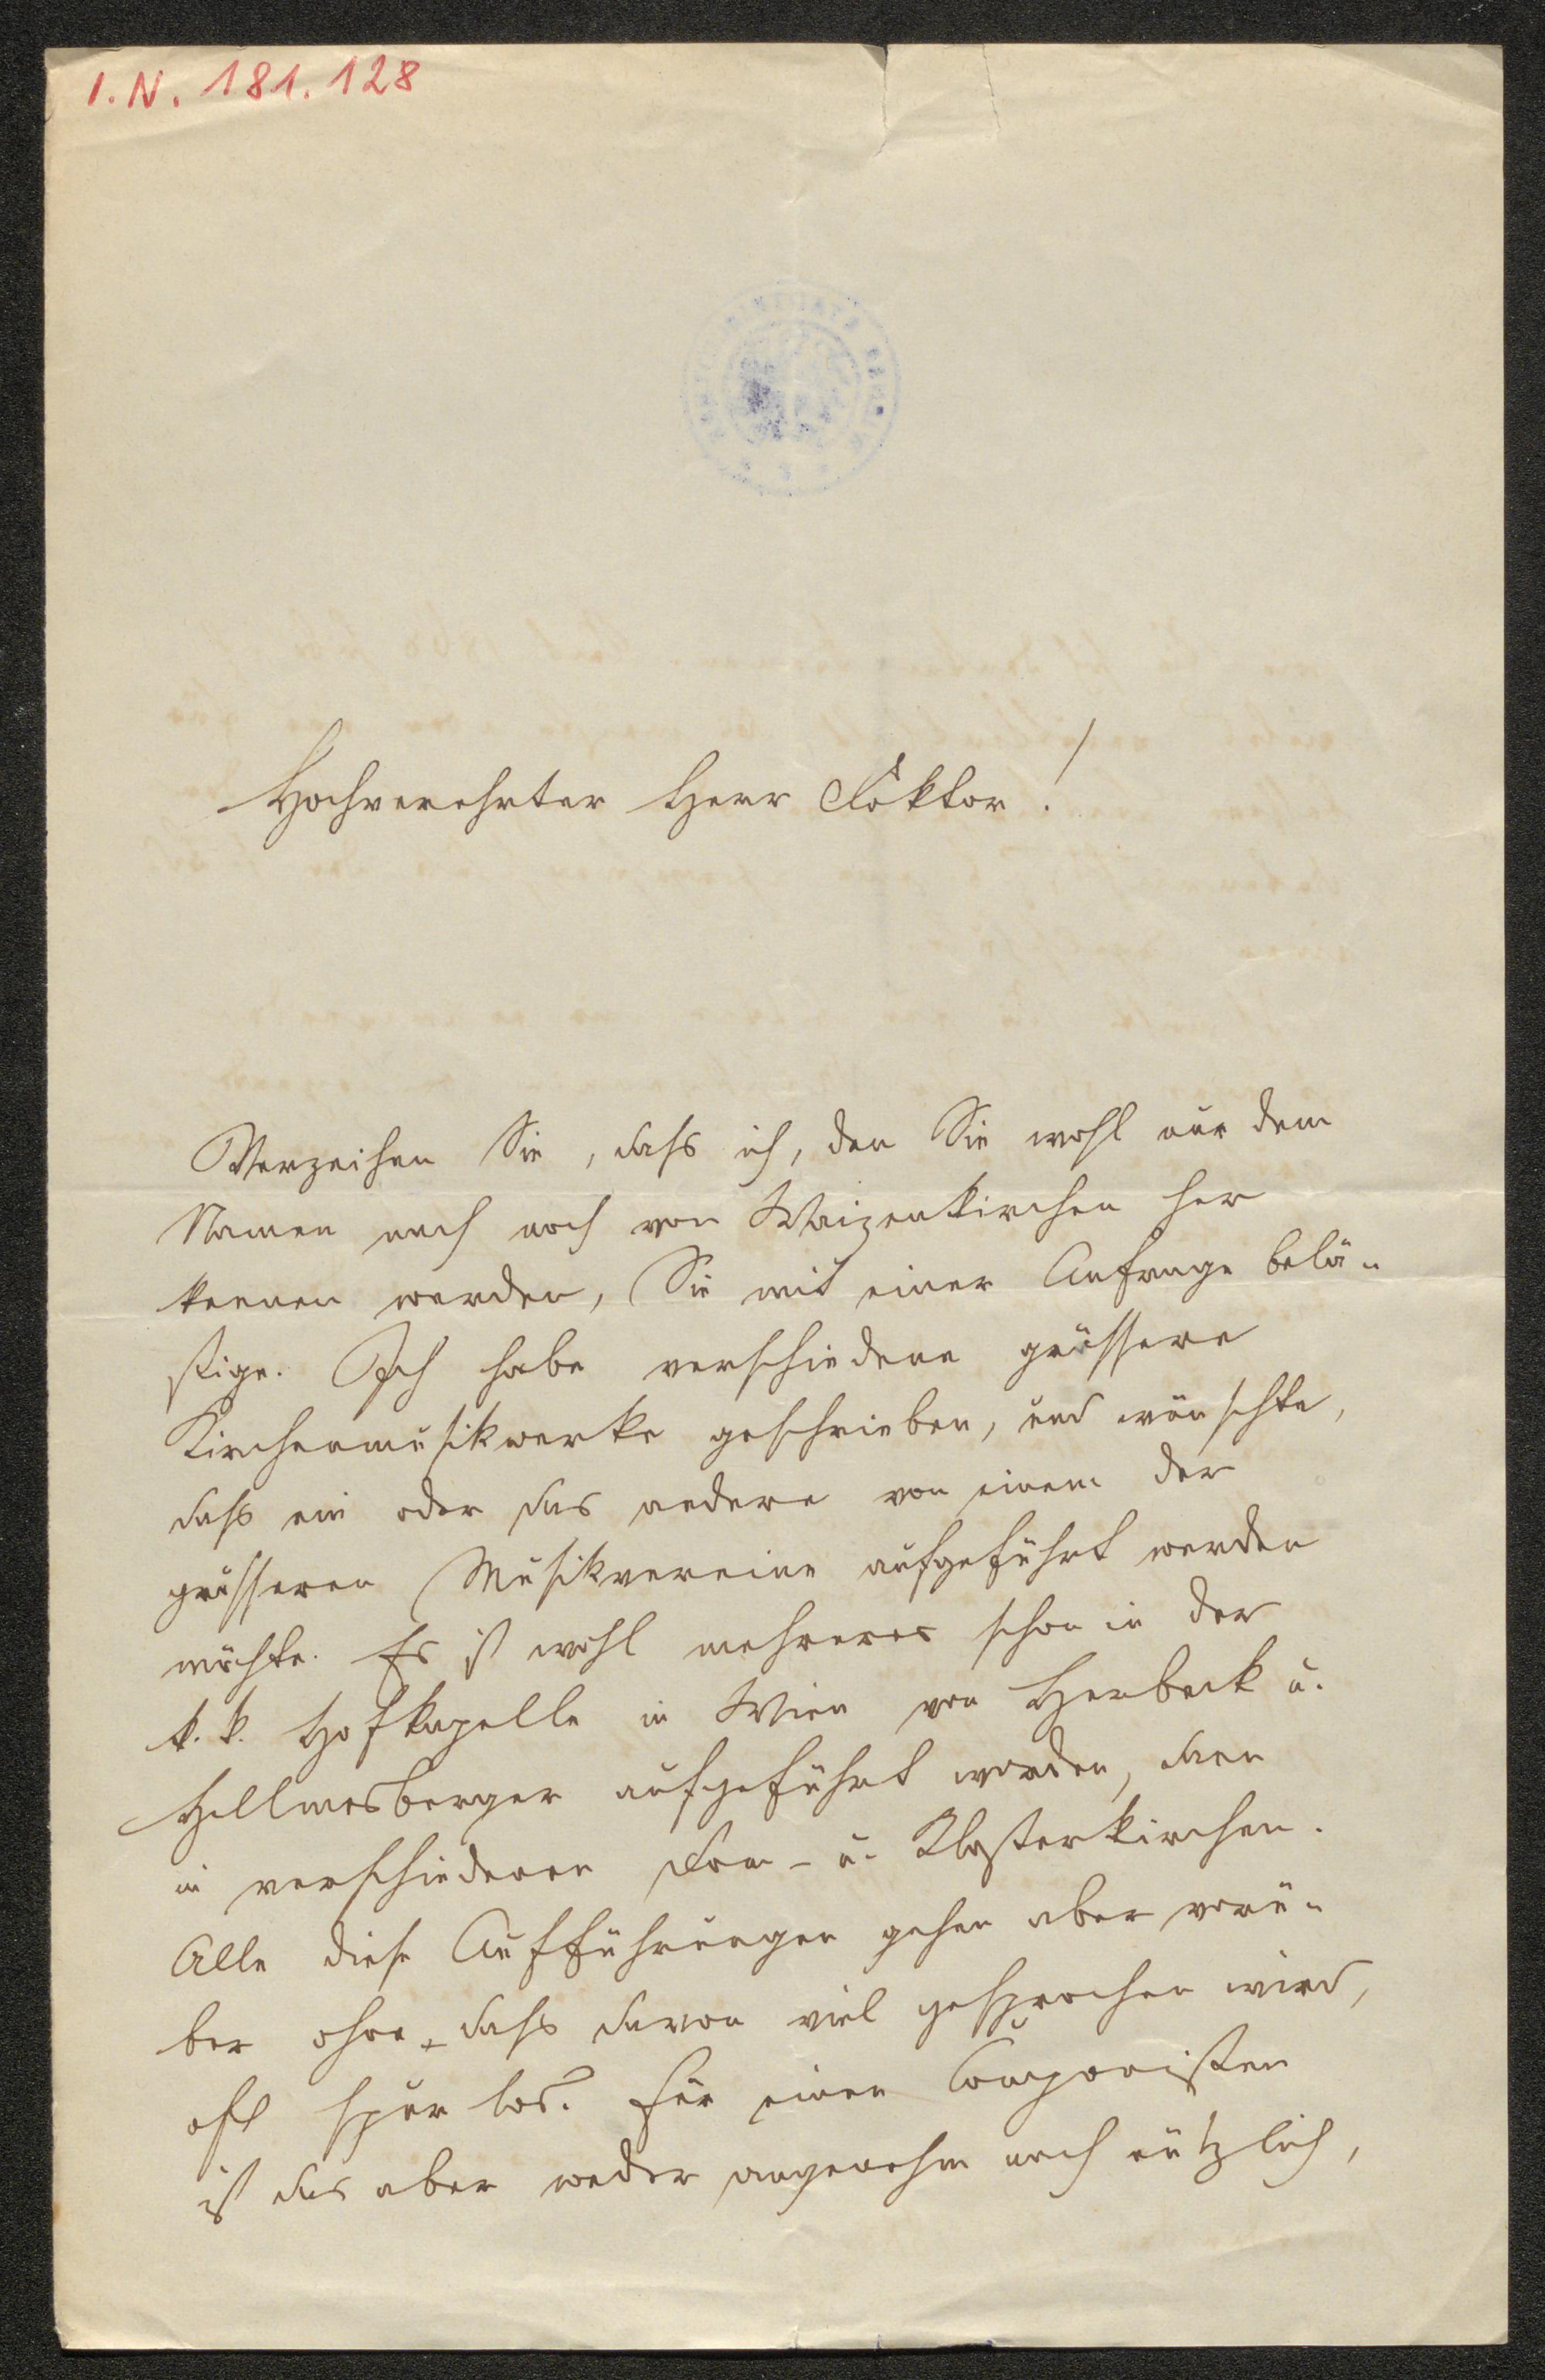 I.N. 181.128
Hochverehrter Herr Doktor!
Verzeihen Sie, daſs ich, den Sie wohl nur dem
Namen nach noch von Waizenkirchen her
kennen werden, Sie mit einer Anfrage belä-
stige. Ich habe verschiedene grössere
Kirchenmusikwerke geschrieben, und wünschte,
daſs ein oder das andere von einem der
grösseren Musikvereine aufgeführt werden
möchte. Es ist wohl mehreres schon in der
k. k. Hofkapelle in Wien von Herbeck u.
Hellmesberger aufgeführt worden, dann
in verschiedenen Dom- u. Klosterkirchen.
Alle diese Aufführungen gehen aber vorü-
ber ohne, daſs davon viel gesprochen wird,
oft spurlos. Für einen Componisten
ist das aber weder angenehm noch nützlich,